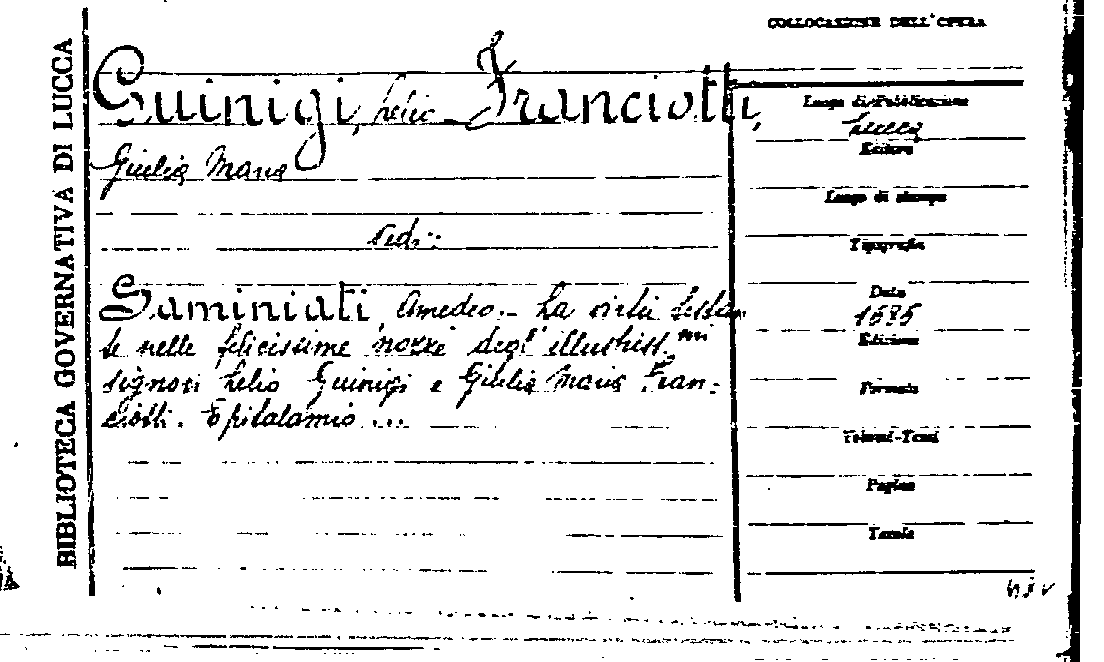 BIBLIOTECA GOVERNATIVA DI LUCCA
COLLOCAZIONE DELL'OPERA
Guinigi, Lelio - Franciotti,
Giulia Maria
Vedi:
Saminiati, Amedeo. - La virtù festan-
te nelle felicissime nozze degl' illustriss.mi
signori Lelio Guinigi e Giulia Maria Fran-
ciotti. Epitalamio ...
Luogo di Pubblicazione
Lucca
Editore
Luogo di stampa
Tipografia
Data
Edizione
Formato
Volumi-Tomi
Pagine
Tavole